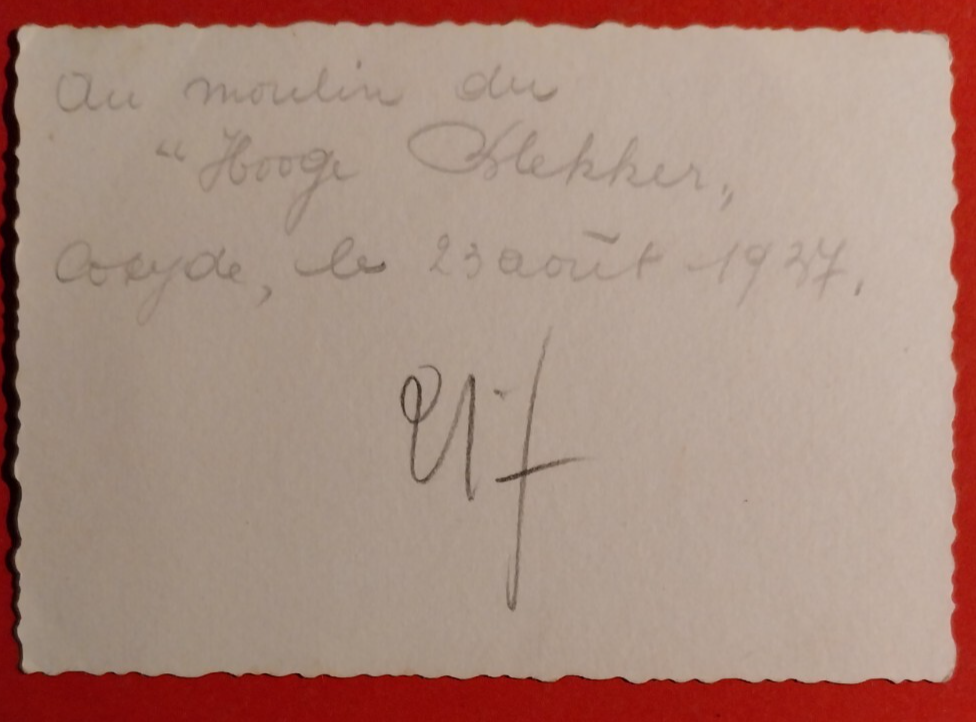 Au moulin du
“Hooge Blekker„
Coxyde, le 23 août 1937.